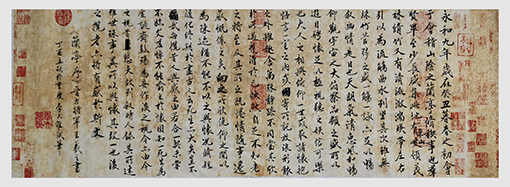 永和九年歲在癸丑暮春之初會
于會稽山陰之蘭亭脩稧事也群
賢畢至少長咸集此地有崇山峻領茂
林脩竹又有清流激湍映帶左右
引以為流觴曲水列坐其次雖無
絲竹管弦之盛一觴一詠亦足以暢
敘幽情是日也天朗氣清惠風和暢
仰觀宇宙之大俯察品類之盛所以
遊目騁懷足以極視聽之娛信可樂
也夫人之相與俯仰一世或取諸懷抱
悟言一室之內或因寄所託放浪形骸
之外雖趣舍萬殊靜躁不同當其欣
於所遇暫得於己快然自足不知老
之將至及其所之既惓情隨事遷
感慨係之矣向之所欣俛仰之閒以
為陳迹猶不能不以之興懷況脩短
隨化終期於盡古人云死生亦大矣豈
不痛哉每攬昔人興感之由若合一契未嘗
不臨文嗟悼不能喻之於懷固知一死生為
虛誕齊彭殤為妄作後之視今亦由今
之視昔悲夫故列敘時人錄其所述
雖世殊事異所以興懷其致一也後
之攬者亦將有感於斯文
蘭亭序